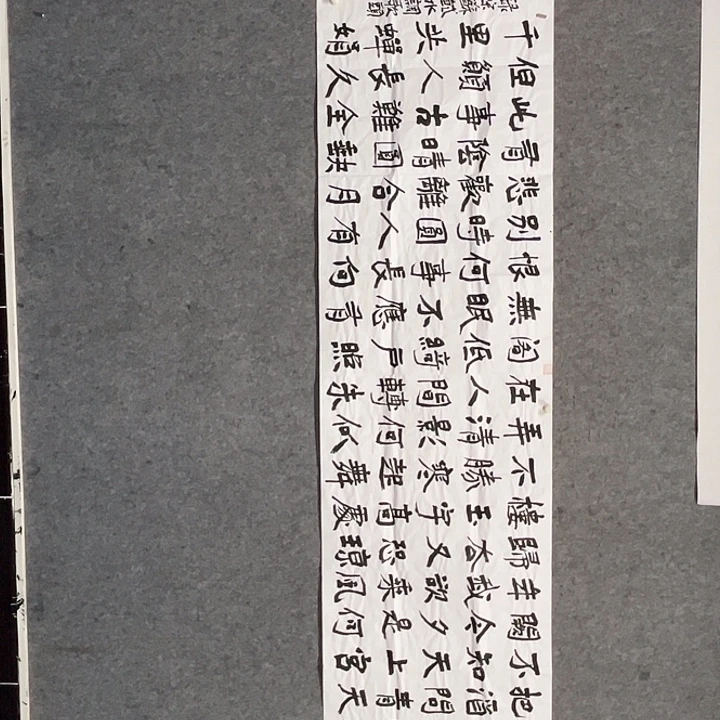 把酒問青天
不知天上宮
闕今夕是何
年我欲乘風
歸去又恐瓊
樓玉宇高處
不勝寒起舞
弄清影何似
在人間轉朱
閣低綺戶照
無眠不應有
恨何事長向
別時圓人有
悲歡離合月
有陰晴圓缺
此事古難全
但願人長久
千里共嬋娟
蘇軾水調歌頭